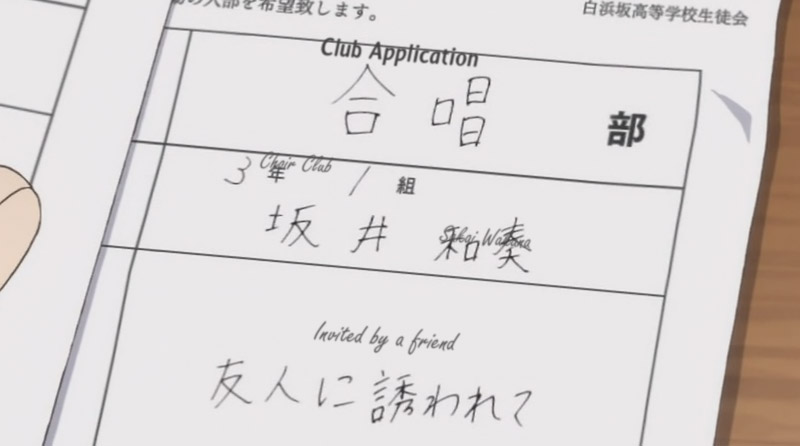 の入部を希望致します。
白浜坂高等学校生徒会
Club Application
合唱 部
Choir Club
3年 / 組
坂井 和奏
Sakai Wakana
Invited by a friend
友人に誘われて